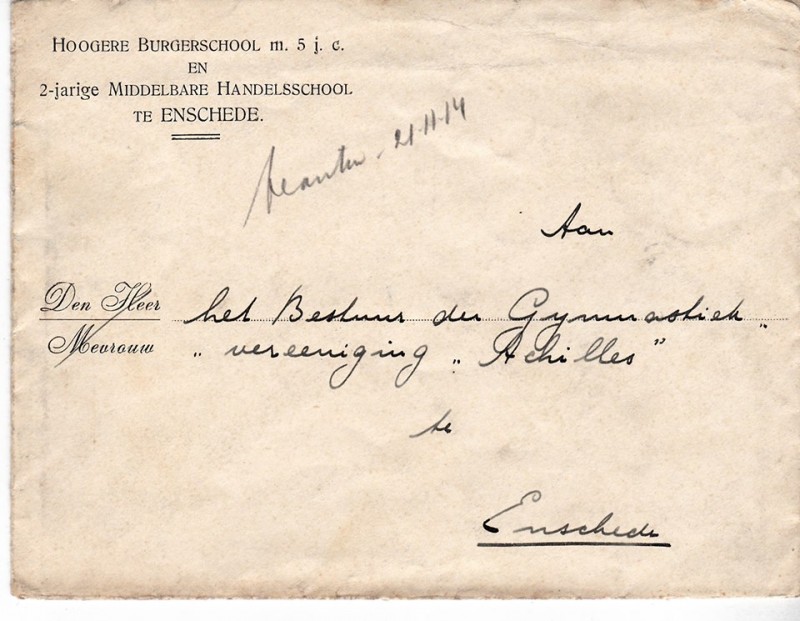 HOOGERE BURGERSCHOOL m. 5 j. c.
EN
2-jarige MIDDELBARE HANDELSSCHOOL
TE ENSCHEDE.
21-11-14
Aan
Den Heer
Mevrouw
het Bestuur der Gymnastiek „
„ vereeniging „Achilles”
te
Enschede